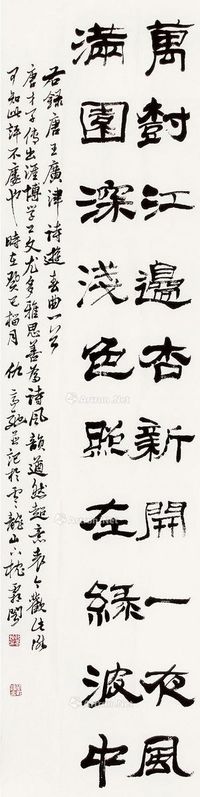 萬樹江邊杏新開一夜風
滿園深淺色照在綠波中
右錄唐王廣津詩遊春曲一首
唐才子傳云涯博學工文尤多雅思善為詩風韻遒然超意表今觀此
可知此評不虛也時在癸巳梅月仇高馳並記於雲龍山下枕霞閣